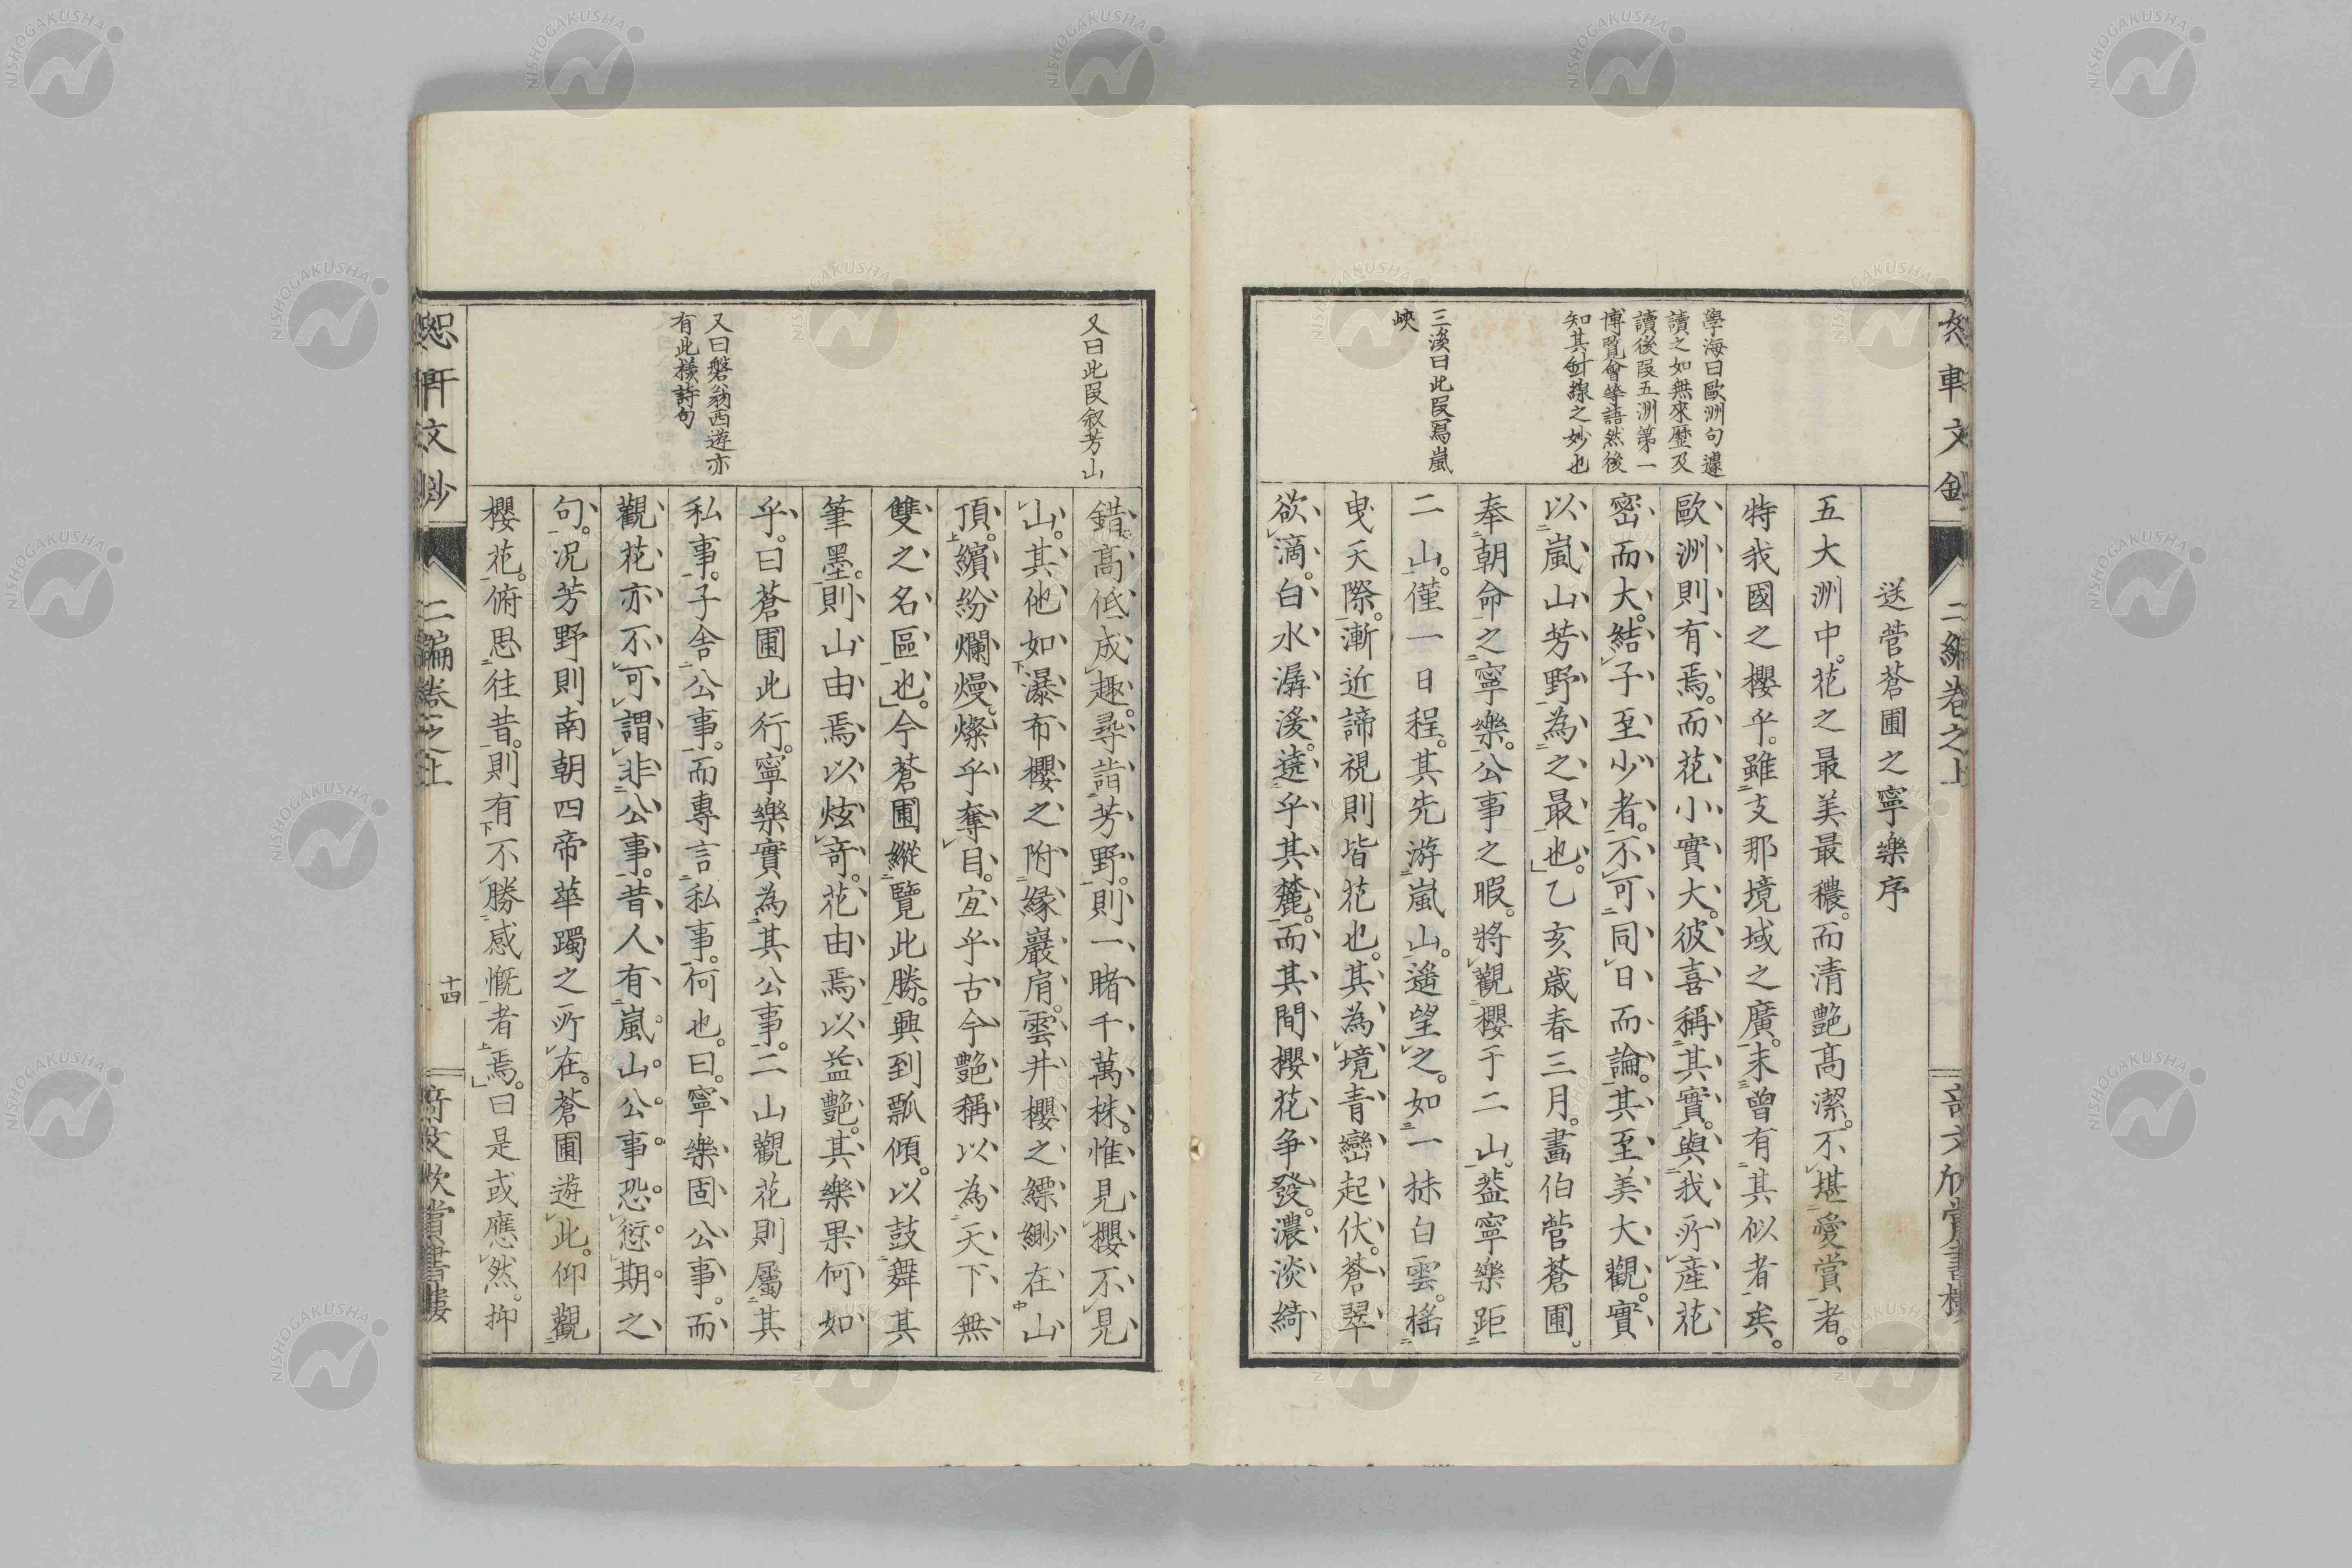 送菅蒼圃之寧樂序
五大洲中。花之最美最穠。而清艶高潔。不堪愛賞者。
特我國之櫻乎。雖支那境域之廣。未曾有其似者矣。
歐洲則有焉。而花小實大。彼喜稱其實。與我所產花
密而大。結子至少者。不可同日而論。其至美大觀。實
以嵐山芳野為之最也。乙亥歲春三月。畫伯菅蒼圃
奉朝命之寧樂。公事之暇。將觀櫻于二山。蓋寧樂距
二山。僅一日程。其先游嵐山。遙望之。如一抹白雲。搖
曳天際。漸近諦視則皆花也。其為境青巒起伏。蒼翠
欲滴。白水潺湲。遶乎其麓。而其間櫻花爭發。濃淡綺
學海曰歐洲句遽
讀之如無來歷及
讀後段五洲第一
博覽會等語然後
知其針線之妙也
三溪曰此段寫嵐
峽
二編卷之上
錯。高低成趣。尋詣芳野。則一睹千萬株。惟見櫻不見
山。其他如瀑布櫻之附緣巖肩。雲井櫻之縹緲在山
頂。繽紛爛熳。燦乎奪目。宜乎古今艶稱以為天下無
雙之名區也。今蒼圃縱覽此勝。興到瓢傾。以鼓舞其
筆墨。則山由焉以炫奇。花由焉以益艶。其樂果何如
乎。曰蒼圃此行。寧樂實為其公事。二山觀花則屬其
私事。子舍公事。而專言私事。何也。曰。寧樂固公事。而
觀花亦不可謂非公事。昔人有嵐山公事恐愆期之
句。況芳野則南朝四帝華躅之所在。蒼圃遊此。仰觀
櫻花。俯思往昔。則有不勝感慨者焉。曰是或應然。抑
又曰此段叙芳山
又曰磐翁西遊亦
有此様詩句
二編卷之上
十四
NISHOGAKUSHA